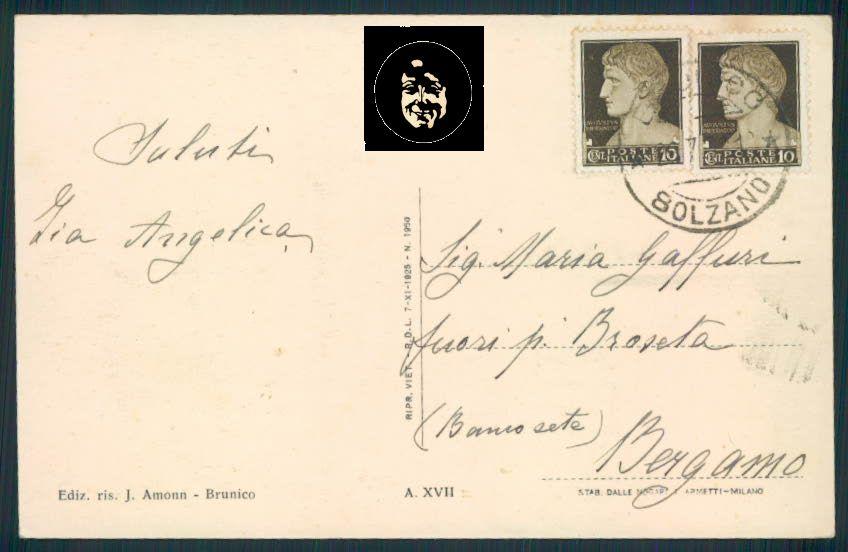 Saluti
Zia Angelica
AVGVSTVS
IMPERATOR
POSTE
CENT. ITALIANE 10
AVGVSTVS
IMPERATOR
POSTE
CENT. ITALIANE 10
BOLZANO
RIPR. VIET. - R.D.L. 7-XI-1925 - N. 1950
Sig. Maria Gaffuri
fuori p. Broseta
(Banco sete)
Bergamo
Ediz. ris. J. Amonn - Brunico
A. XVII
STAB. DALLE ARMETTI-MILANO